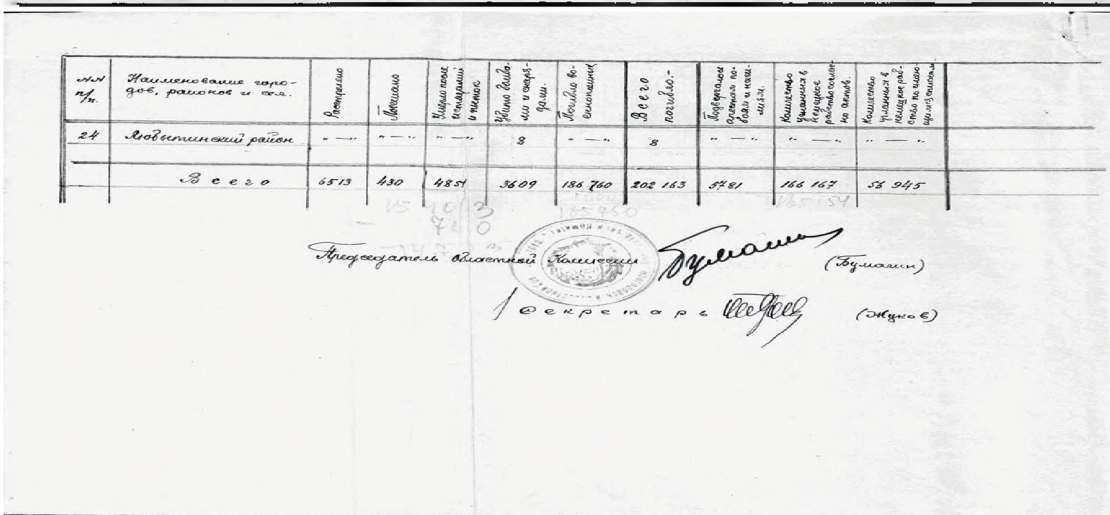 NN п/п. Наименование горо-дов, районов и сел. Расстреляно Повешано Умерло после истязаний и пыток Убито бомба-ми и снаря-дами. Погибло во-еннопленных Всего погибло.- Подвергалось арестам по-боям и наси-лиям. Количество угнанных в немецкое рабство согласно актов. Количество угнанных в немецкое раб-ство по имею-щимся спискам
24 Любытинский район " — " " — " " — " 8 " — " 8 " — " " — " " — "
Всего 6513 430 4851 3609 186 760 202 163 5781 166 167 56 945
Председатель областной Комиссии (Бумагин)
Секретарь (Жуков)